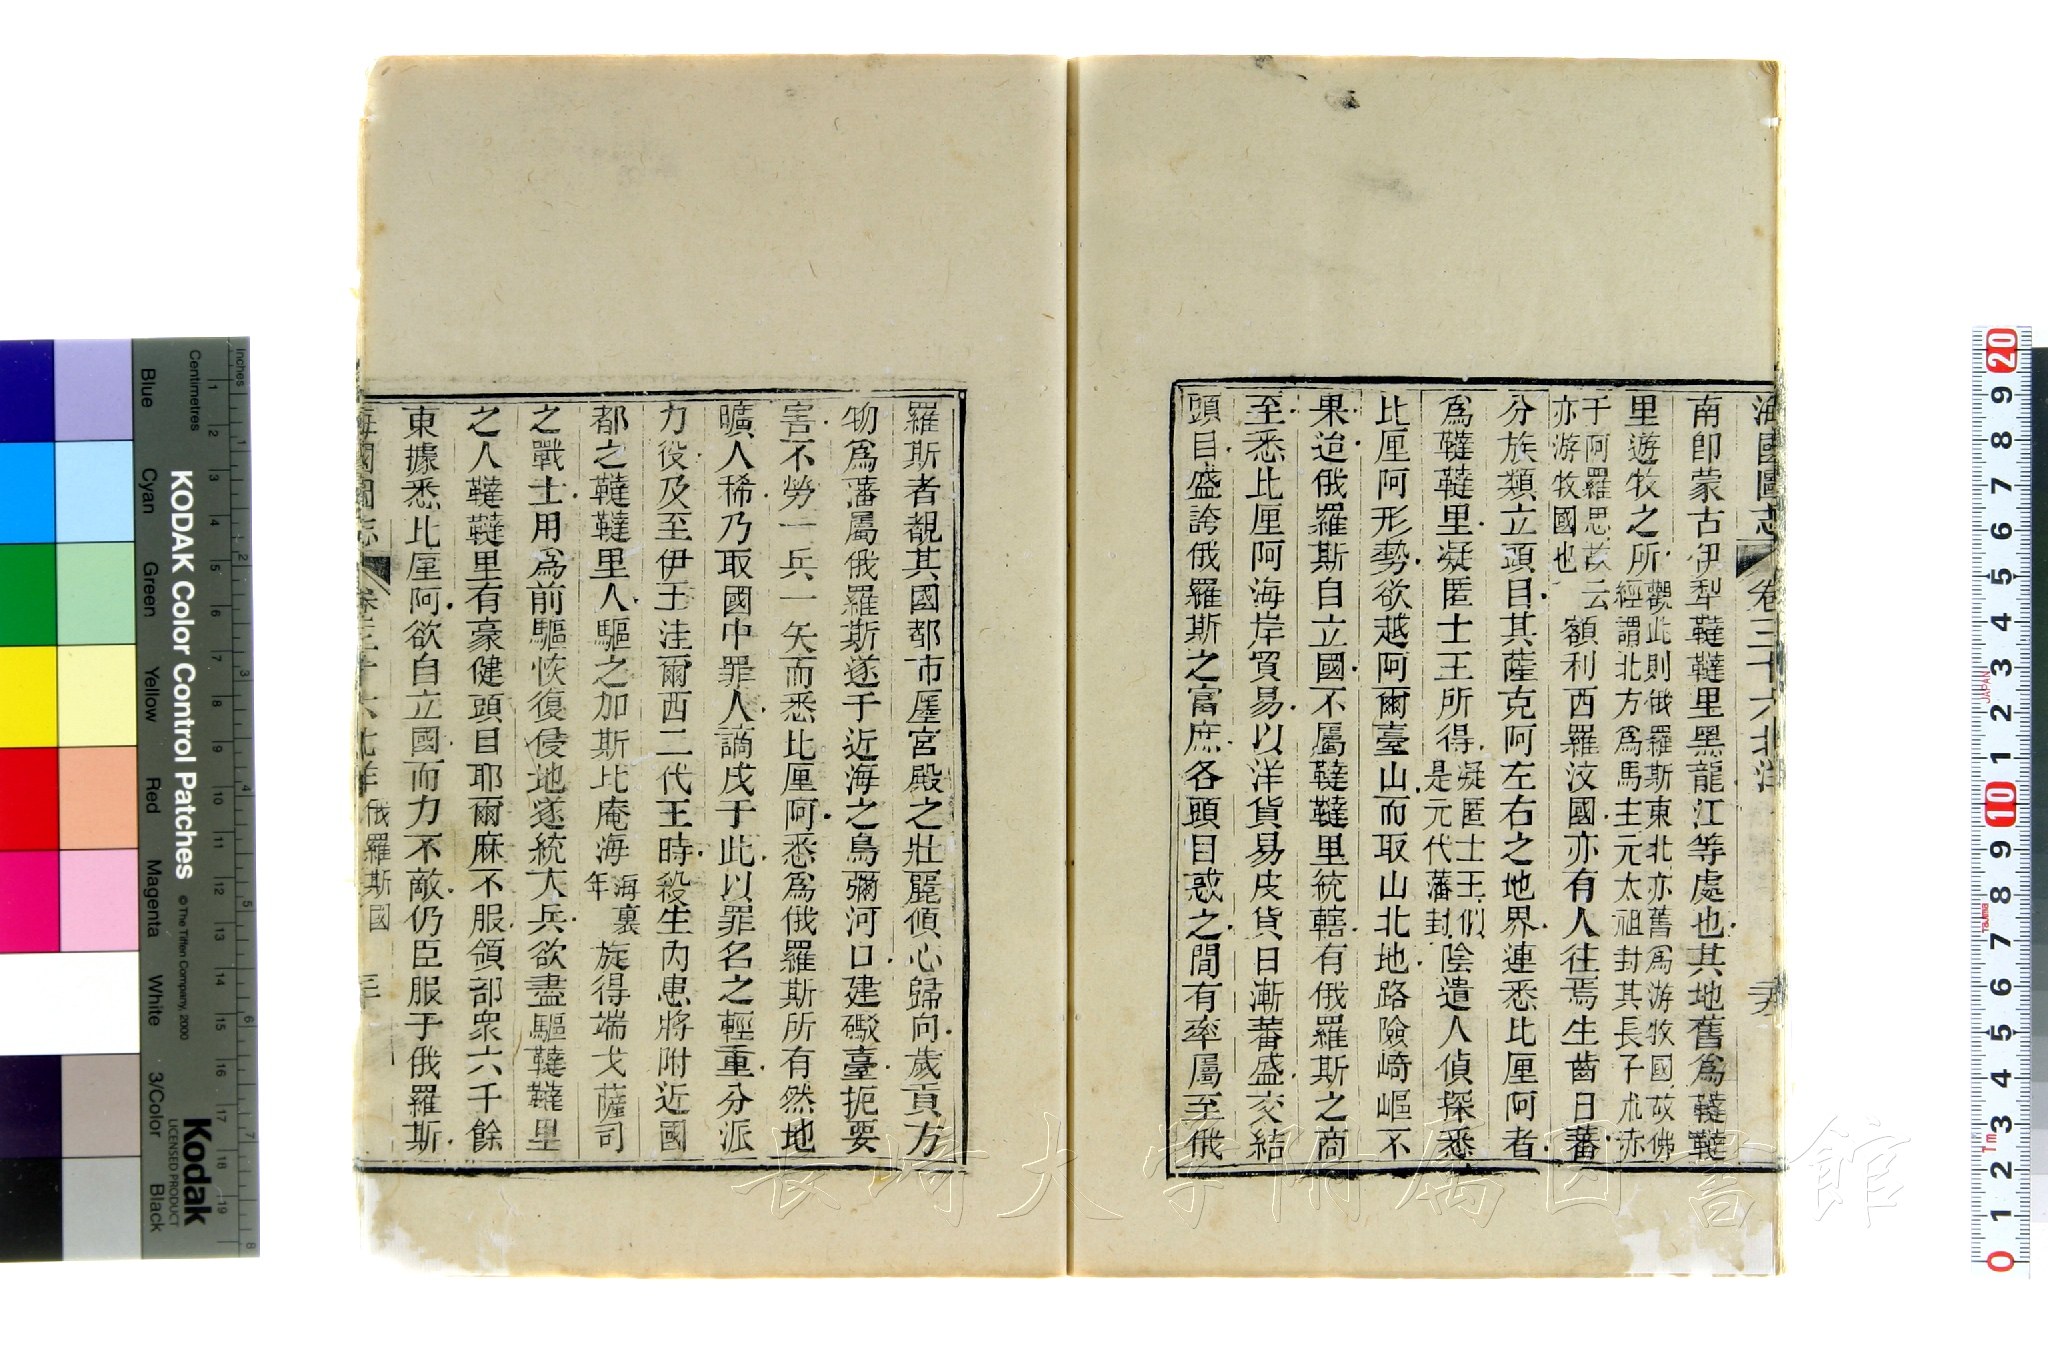 海國圖志 卷三十六北洋
南卽蒙古伊犁韃韃里黑龍江等處也其地舊爲韃韃
里遊牧之所觀此則俄羅斯東北亦舊爲游牧國故佛經謂北方爲馬主元太祖封其長子朮赤
于阿羅思故云亦游牧國也額利西羅汶國亦有人往焉生齒日蕃
分族類立頭目其薩克阿左右之地界連悉比厘阿者
爲韃韃里凝匿士王所得凝匿士王似是元代藩封陰遣人偵探悉
比厘阿形勢欲越阿爾臺山而取山北地路險崎嶇不
果迨俄羅斯自立國不屬韃韃里統轄有俄羅斯之商
至悉比厘阿海岸貿易以洋貨易皮貨日漸蕃盛交結
頭目盛誇俄羅斯之富庶各頭目惑之間有率屬至俄
羅斯者覩其國都市廛宮殿之壯麗傾心歸向歲貢方
物爲藩屬俄羅斯遂于近海之鳥彌河口建礮臺扼要
害不勞一兵一矢而悉比厘阿悉爲俄羅斯所有然地
曠人稀乃取國中罪人謫戍于此以罪名之輕重分派
力役及至伊王洼爾西二代王時殺生內患將附近國
都之韃韃里人驅之加斯比庵海海裏年旋得端戈薩司
之戰士用爲前驅恢復侵地遂統大兵欲盡驅韃韃里
之人韃韃里有豪健頭目耶爾麻不服領部衆六千餘
東據悉比厘阿欲自立國而力不敵仍臣服于俄羅斯
海國圖志 卷三十六北洋 俄羅斯國 三十
KODAK Color Control Patches
©The Tiffen Company, 2000
Kodak
LICENSED PRODUCT
Inches
Centimetres
Blue
Cyan
Green
Yellow
Red
Magenta
White
3/Color
Black
長崎大学附属図書館